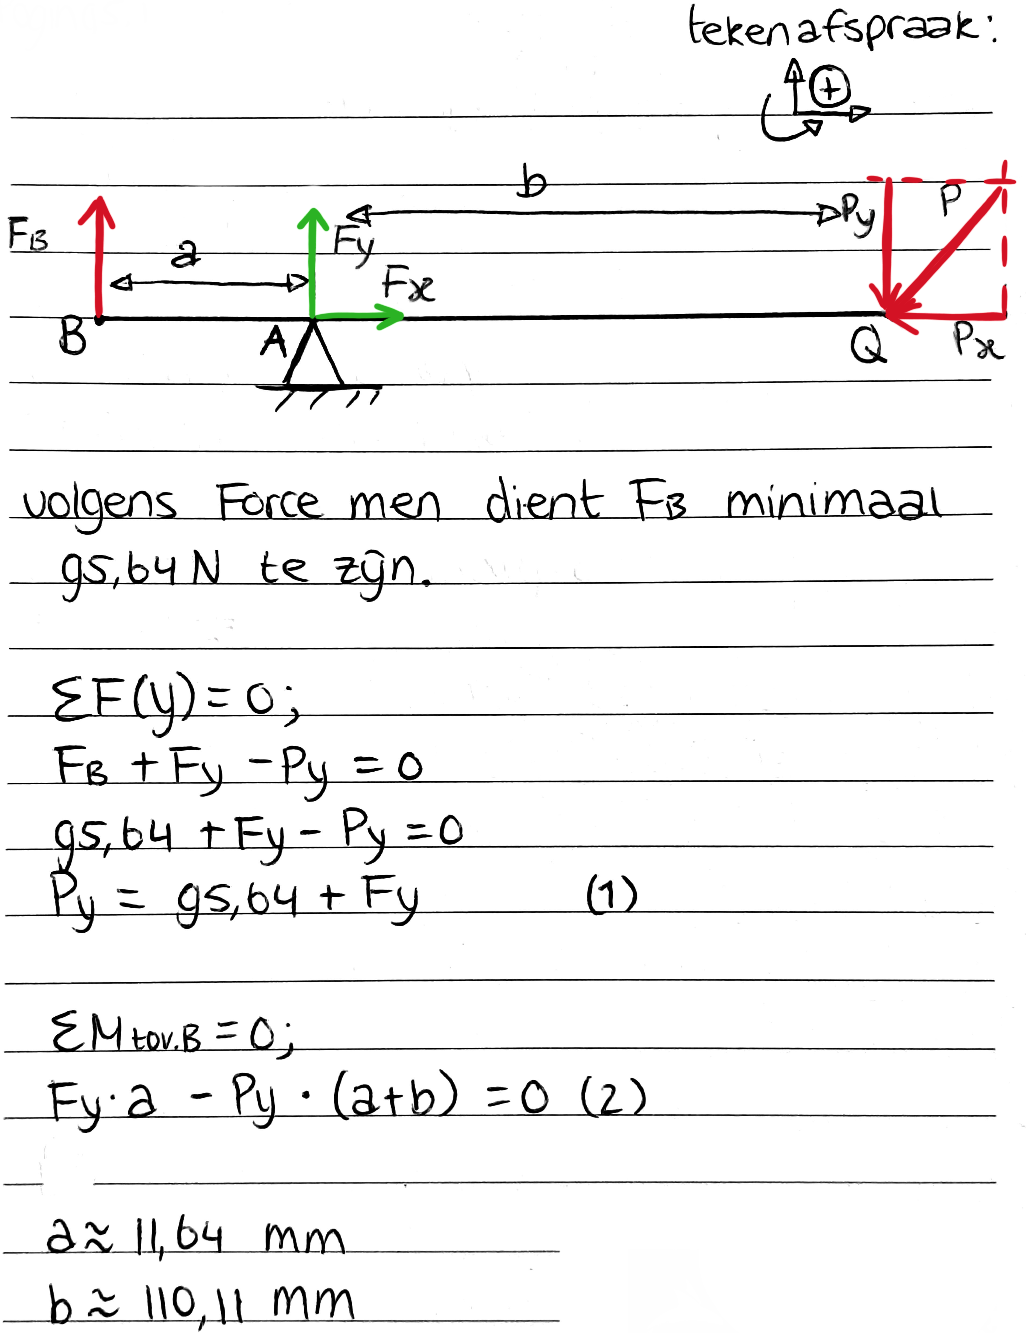 tekenafspraak:
+
b
FB
a
Fy
Fx
Py
P
B
A
Q
Px
volgens Force men dient FB minimaal
95,64 N te zijn.
ΣF(y) = 0;
FB + Fy - Py = 0
95,64 + Fy - Py = 0
Py = 95,64 + Fy (1)
ΣM tov.B = 0;
Fy · a - Py · (a+b) = 0 (2)
a ≈ 11,64 mm
b ≈ 110,11 mm